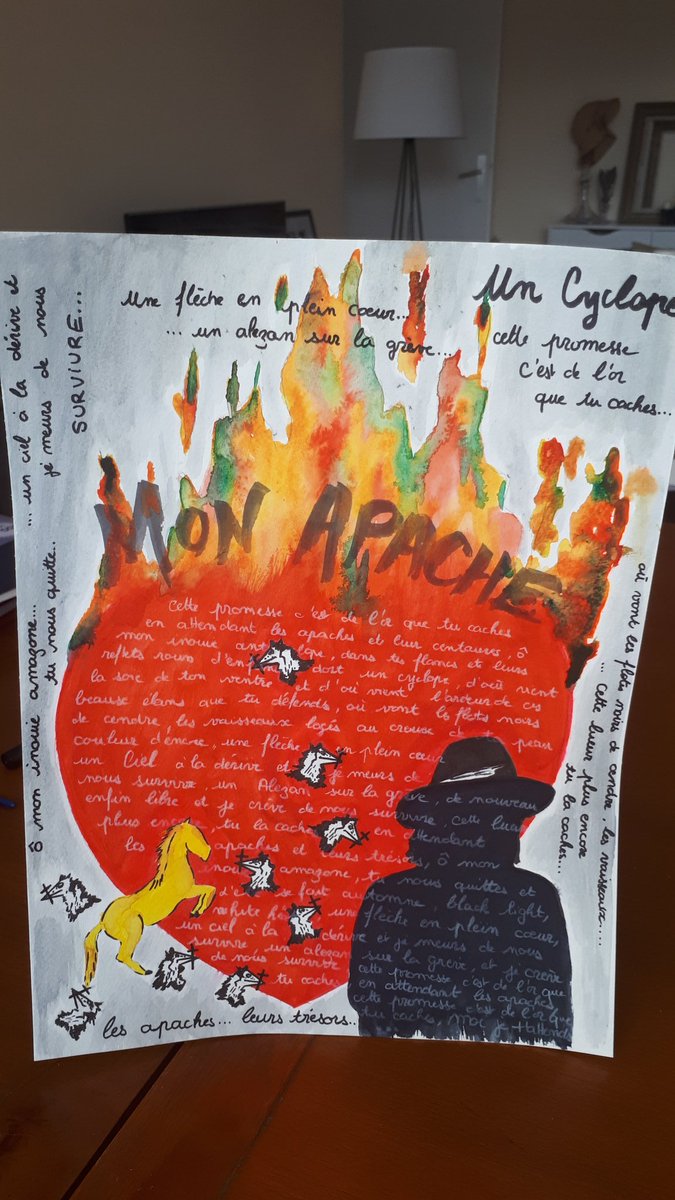 Un Cyclope
une flèche en plein coeur...
... un alezan sur la grève...
cette promesse
c'est de l'or
que tu caches...
... un ciel à la dérive et
je meurs de nous
SURVIVRE...
ô mon inouïe amazone...
tu nous quitte..
MON APACHE
cette promesse c'est de l'or que tu caches
en attendant les apaches et leur centaures, ô
mon inouïe que, dans tes flancs et leurs
reflets dort un cyclope, d'où vient
la soie de ton ventre et d'où vient l'ardeur de ces
beaux élans que tu défends, où vont les flots noirs
de cendre, les vaisseaux logés au creux de peau
couleur d'encre, une flèche en plein coeur
un Ciel à la dérive et je meurs de
nous survivre, un Alezan sur la grève, de nouveau
enfin libre et je crève de nous survivre cette lueur
plus encore, tu la caches en attendant
les apaches et leurs trésors, ô mon
amazone, tu nous quittes et
se fait automne black light,
white une flèche en plein coeur,
un ciel à la dérive et je meurs de nous
survivre un alezan sur la grève, et je crève
de nous survivre cette promesse c'est de l'or que
tu caches en attendant les apaches
cette promesse c'est de l'or que
tu caches, moi je t'attends
où vont les flots noirs de cendre, les vaisseaux....
... Cette lueur plus encore
tu la caches...
les apaches... leurs trésors...